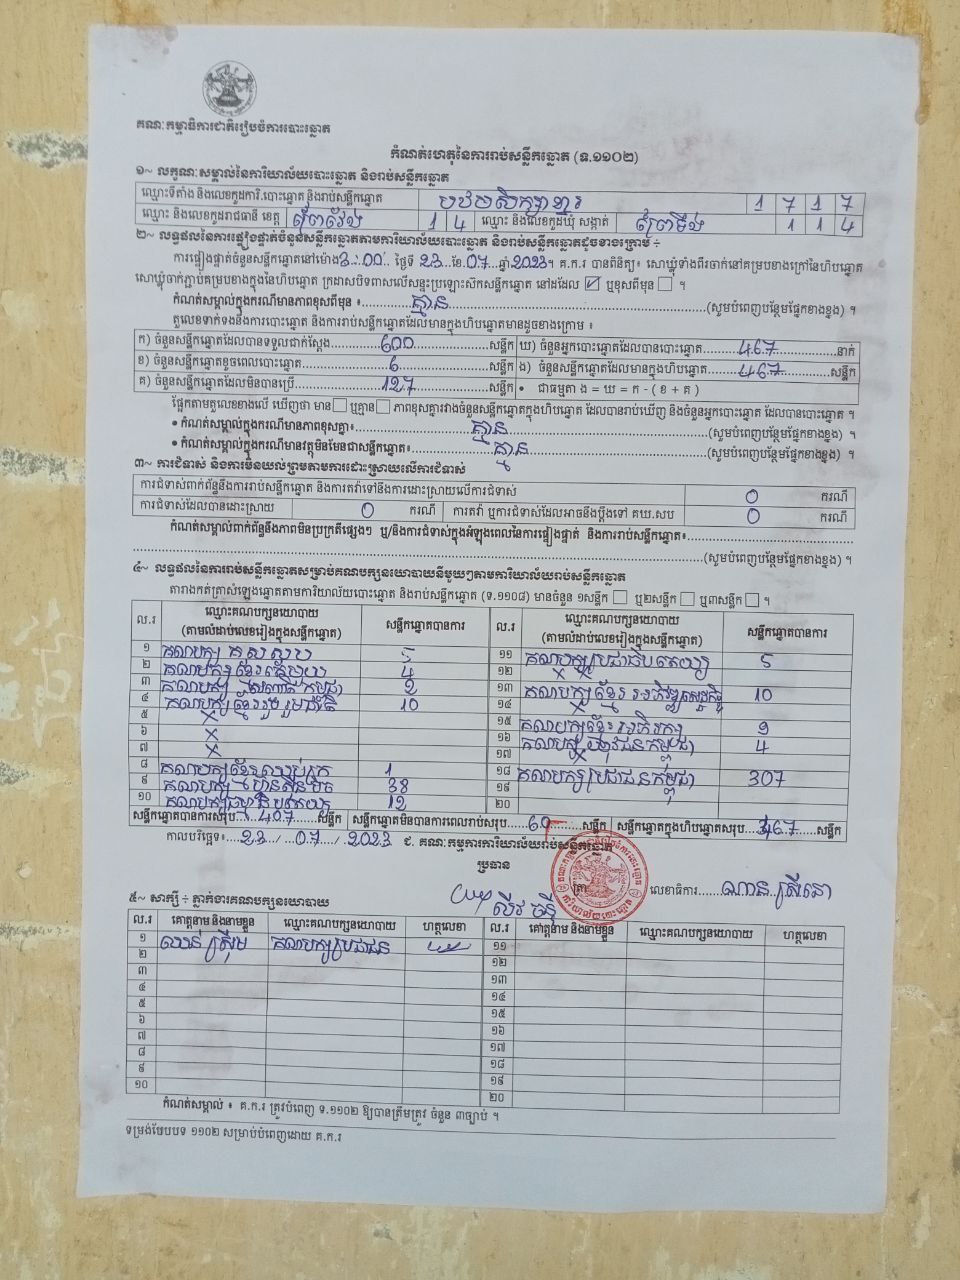 គណៈកម្មាធិការជាតិរៀបចំការបោះឆ្នោត
កំណត់ហេតុនៃការរាប់សន្លឹកឆ្នោត (ទ.១១០២)
១~ លក្ខណៈសម្គាល់នៃការិយាល័យបោះឆ្នោត និងរាប់សន្លឹកឆ្នោត
ឈ្មោះទីតាំង និងលេខកូដការិ.បោះឆ្នោត និងរាប់សន្លឹកឆ្នោត 1 7 1 7
ឈ្មោះ និងលេខកូដរាជធានី ខេត្ត ព្រៃវែង 1 4 ឈ្មោះ និងលេខកូដឃុំ សង្កាត់ 1 1 4
២~ លទ្ធផលនៃការផ្ទៀងផ្ទាត់ចំនួនសន្លឹកឆ្នោតតាមការិយាល័យបោះឆ្នោត និងរាប់សន្លឹកឆ្នោតដូចខាងក្រោម ÷
ការផ្ទៀងផ្ទាត់ចំនួនសន្លឹកឆ្នោតនៅម៉ោង 3:00 ថ្ងៃទី 23 ខែ 07 ឆ្នាំ 2023។ គ.ក.រ បានពិនិត្យ៖ សោឃ្លុំទាំងពីរចាក់នៅគម្របខាងក្រៅនៃហិបឆ្នោត
សោឃ្លុំចាក់ភ្ជាប់គម្របខាងក្នុងនៃហិបឆ្នោត ក្រដាសបិទពាសលើសន្ទះប្រឡោះសិកសន្លឹកឆ្នោត នៅដដែល ☑ ឬខុសពីមុន ☐ ។
កំណត់សម្គាល់ក្នុងករណីមានភាពខុសពីមុន ៖ គ្មាន (សូមបំពេញបន្ថែមផ្នែកខាងខ្នង) ។
តួលេខទាក់ទងនឹងការបោះឆ្នោត និងការរាប់សន្លឹកឆ្នោតដែលមានក្នុងហិបឆ្នោតមានដូចខាងក្រោម ៖
ក) ចំនួនសន្លឹកឆ្នោតដែលបានទទួលជាក់ស្តែង 600 សន្លឹក ឃ) ចំនួនអ្នកបោះឆ្នោតដែលបានបោះឆ្នោត 467 នាក់
ខ) ចំនួនសន្លឹកឆ្នោតខូចពេលបោះឆ្នោត 6 សន្លឹក ង) ចំនួនសន្លឹកឆ្នោតក្នុងហិបឆ្នោត 467 សន្លឹក
គ) ចំនួនសន្លឹកឆ្នោតដែលមិនបានប្រើ 127 សន្លឹក • ជាធម្មតា ង = ឃ = ក - ( ខ + គ )
ផ្អែកតាមតួលេខខាងលើ ឃើញថា មាន ☐ ឬគ្មាន ☐ ភាពខុសគ្នារវាងចំនួនសន្លឹកឆ្នោតក្នុងហិបឆ្នោត ដែលបានរាប់ឃើញ និងចំនួនអ្នកបោះឆ្នោត ដែលបានបោះឆ្នោត ។
• កំណត់សម្គាល់ក្នុងករណីមានភាពខុសគ្នា៖ គ្មាន (សូមបំពេញបន្ថែមផ្នែកខាងខ្នង) ។
• កំណត់សម្គាល់ក្នុងករណីមានវត្ថុមិនមែនជាសន្លឹកឆ្នោត៖ គ្មាន (សូមបំពេញបន្ថែមផ្នែកខាងខ្នង) ។
៣~ ការជំទាស់ និងការមិនយល់ព្រមតាមការដោះស្រាយលើការជំទាស់
ការជំទាស់ពាក់ព័ន្ធនឹងការរាប់សន្លឹកឆ្នោត និងការតវ៉ាទៅនឹងការដោះស្រាយលើការជំទាស់ 0 ករណី
ការជំទាស់ដែលបានដោះស្រាយ 0 ករណី ការតវ៉ា ឬការជំទាស់ដែលអាចនឹងប្តឹងទៅ គឃ.សប 0 ករណី
កំណត់សម្គាល់ពាក់ព័ន្ធនឹងភាពមិនប្រក្រតីផ្សេងៗ ឬ/និងការជំទាស់ក្នុងអំឡុងពេលនៃការផ្ទៀងផ្ទាត់ និងការរាប់សន្លឹកឆ្នោត៖
(សូមបំពេញបន្ថែមផ្នែកខាងខ្នង) ។
៤~ លទ្ធផលនៃការរាប់សន្លឹកឆ្នោតសម្រាប់គណបក្សនយោបាយនីមួយៗតាមការិយាល័យរាប់សន្លឹកឆ្នោត
តារាងកត់ត្រាសំឡេងឆ្នោតតាមការិយាល័យបោះឆ្នោត និងរាប់សន្លឹកឆ្នោត (ទ.១១០៨) មានចំនួន ១សន្លឹក ☐ ឬ២សន្លឹក ☐ ឬ៣សន្លឹក ☐ ។
ល.រ ឈ្មោះគណបក្សនយោបាយ (តាមលំដាប់លេខរៀងក្នុងសន្លឹកឆ្នោត) សន្លឹកឆ្នោតបានការ ល.រ ឈ្មោះគណបក្សនយោបាយ (តាមលំដាប់លេខរៀងក្នុងសន្លឹកឆ្នោត) សន្លឹកឆ្នោតបានការ
១ គណបក្ស 5 ១១ គណបក្សប្រជាធិបតេយ្យ 5
២ គណបក្សខ្មែរតែមួយ 4 ១២ ×
៣ គណបក្ស កម្ពុជា 2 ១៣ គណបក្សខ្មែរអភិវឌ្ឍន៍សេដ្ឋកិច្ច 10
៤ គណបក្សខ្មែររួបរួមជាតិ 10 ១៤ ×
៥ × ១៥ គណបក្សខ្មែរអភិរក្ស 9
៦ × ១៦ គណបក្ស កម្ពុជា 4
៧ × ១៧ ×
៨ គណបក្សខ្មែរឈប់ក្រ 1 ១៨ គណបក្សប្រជាជនកម្ពុជា 307
៩ គណបក្ស ហ៊្វុនស៊ិនប៉ិច 38 ១៩
១០ គណបក្ស 12 ២០
សន្លឹកឆ្នោតបានការសរុប 407 សន្លឹក សន្លឹកឆ្នោតមិនបានការពេលរាប់សរុប 60 សន្លឹក សន្លឹកឆ្នោតក្នុងហិបឆ្នោតសរុប 467 សន្លឹក
កាលបរិច្ឆេទ៖ 23 / 07 / 2023 ជ. គណៈកម្មការការិយាល័យរាប់សន្លឹកឆ្នោត
ប្រធាន
ត្រា លេខាធិការ
៥~ សាក្សី ÷ ភ្នាក់ងារគណបក្សនយោបាយ
ល.រ គោត្តនាម និងនាមខ្លួន ឈ្មោះគណបក្សនយោបាយ ហត្ថលេខា ល.រ គោត្តនាម និងនាមខ្លួន ឈ្មោះគណបក្សនយោបាយ ហត្ថលេខា
១ គណបក្សប្រជាជន ១១
២ ១២
៣ ១៣
៤ ១៤
៥ ១៥
៦ ១៦
៧ ១៧
៨ ១៨
៩ ១៩
១០ ២០
កំណត់សម្គាល់ ៖ គ.ក.រ ត្រូវបំពេញ ទ.១១០២ ឱ្យបានត្រឹមត្រូវ ចំនួន ៣ច្បាប់ ។
ទម្រង់បែបបទ ១១០២ សម្រាប់បំពេញដោយ គ.ក.រ